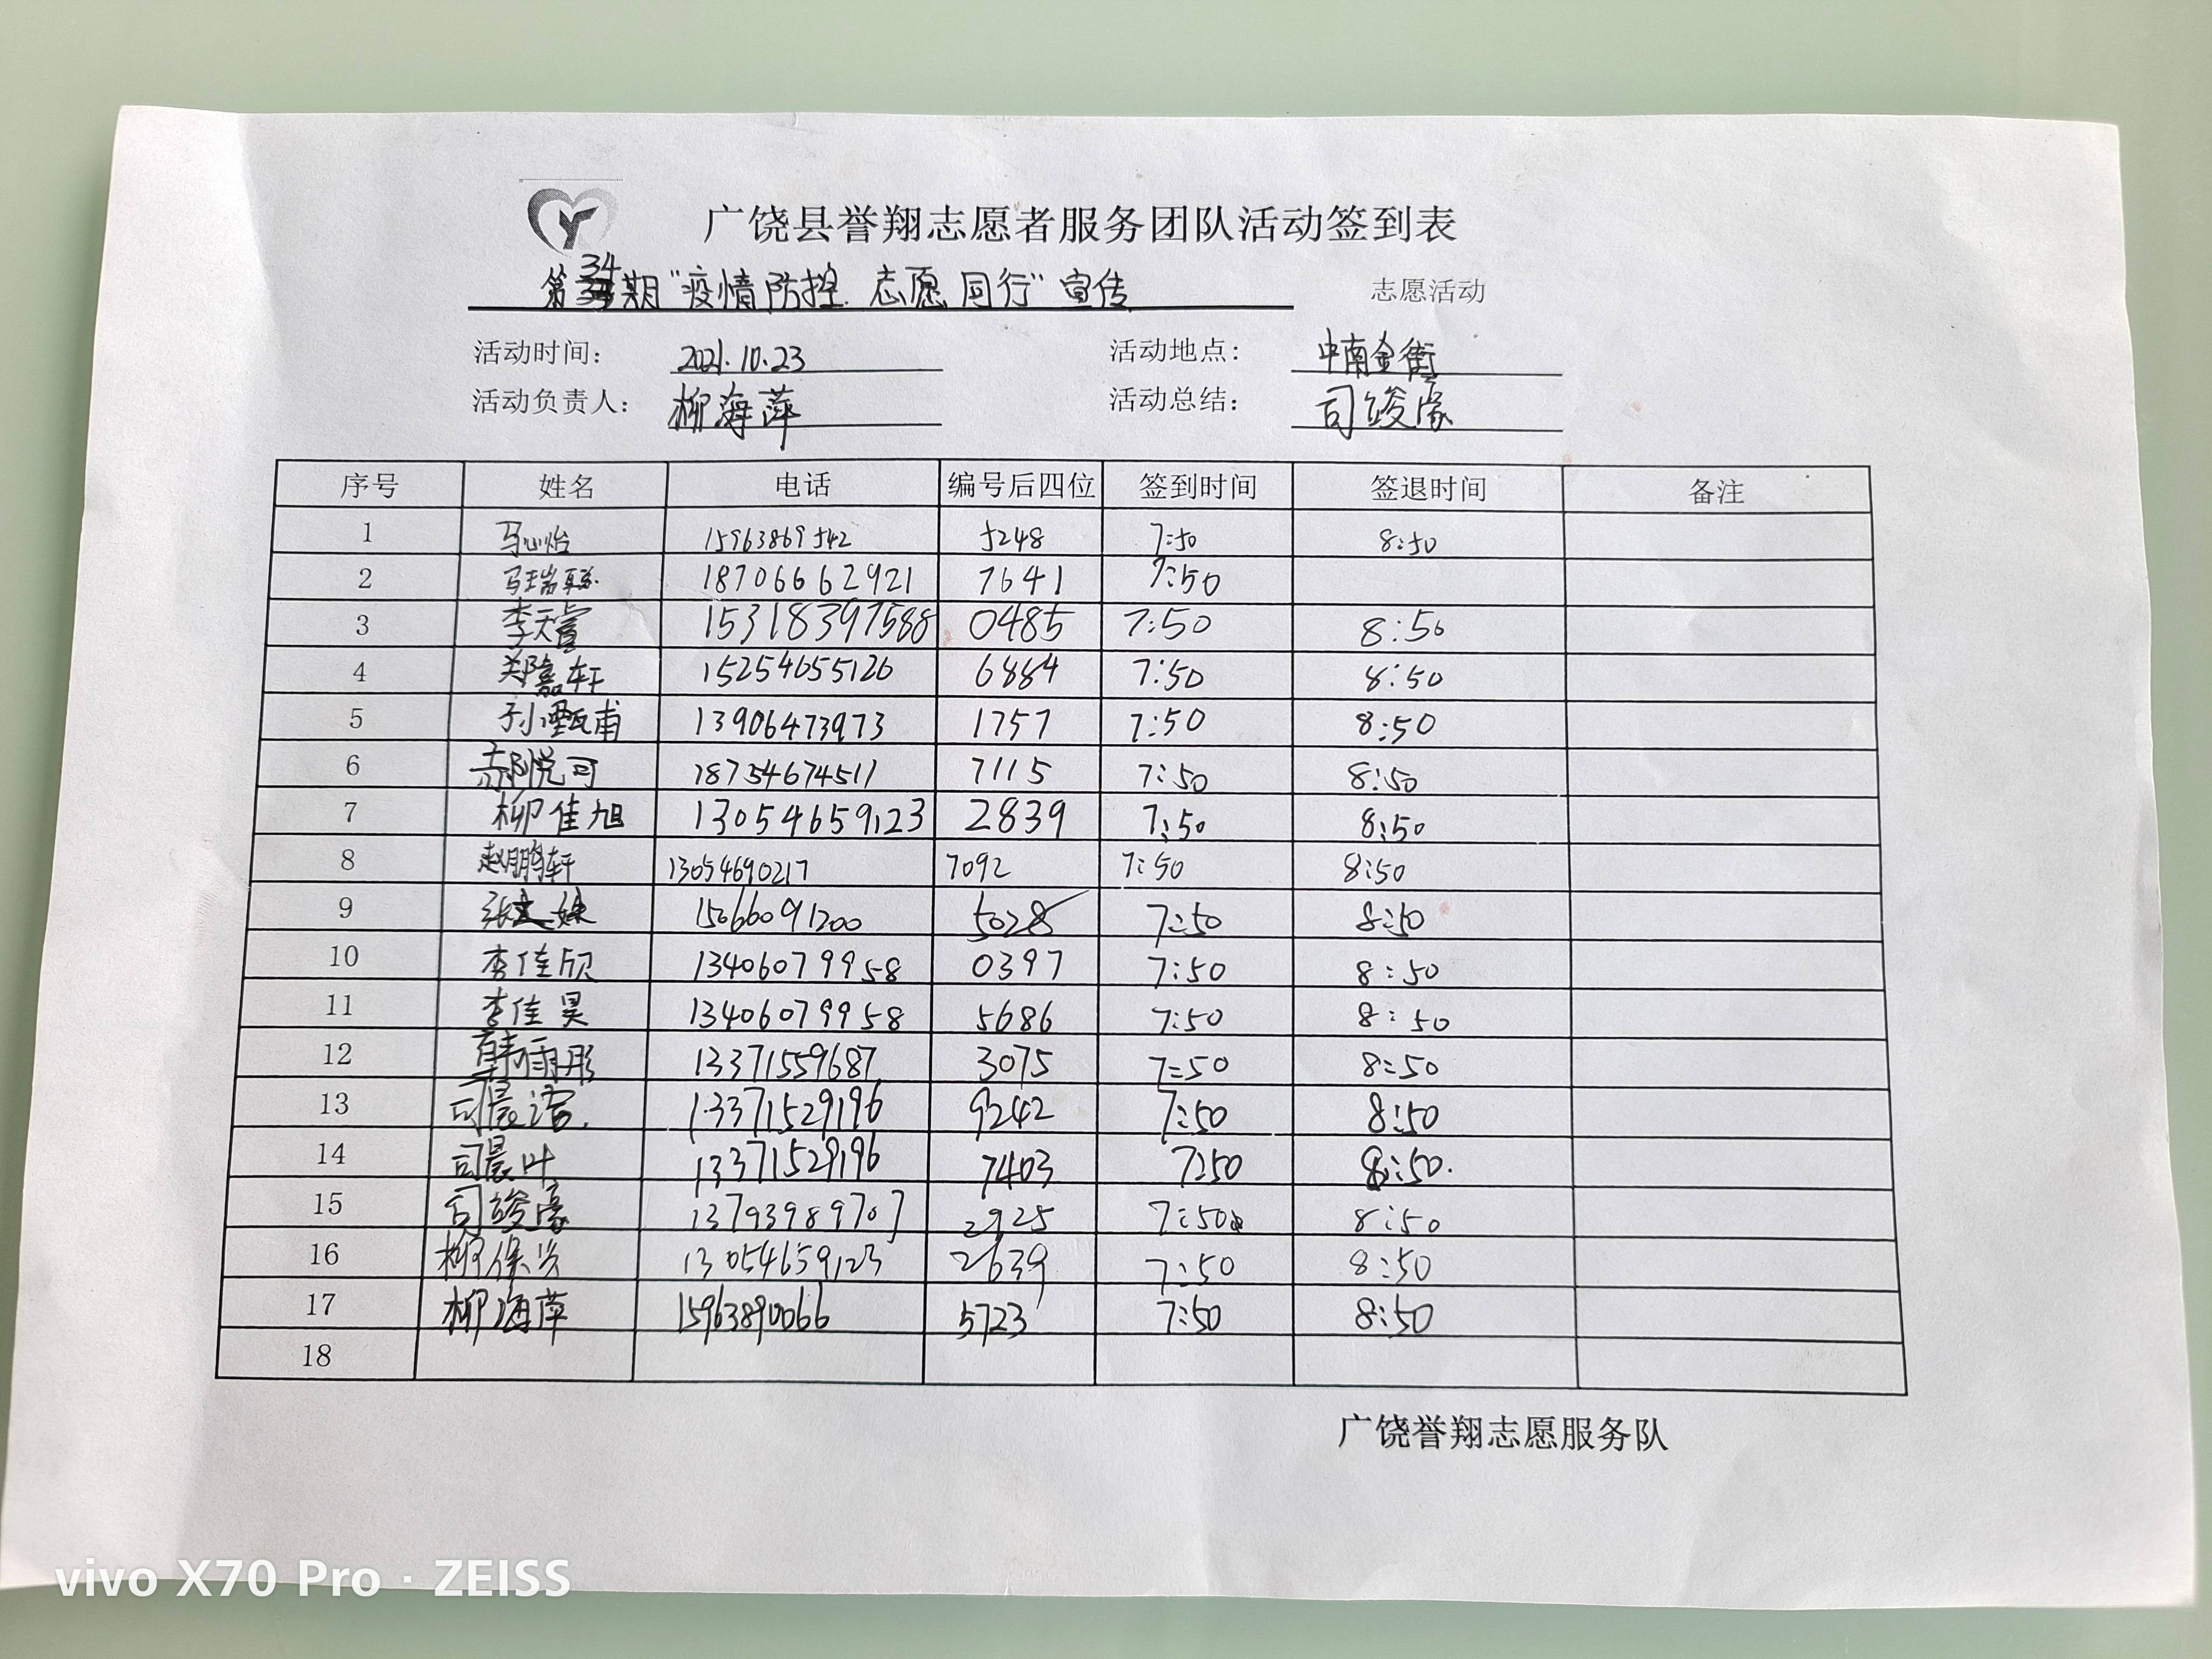 广饶县誉翔志愿者服务团队活动签到表
第34期“疫情防控.志愿同行”宣传 志愿活动
活动时间: 2021.10.23 活动地点: 中南金街
活动负责人: 柳海萍 活动总结: 司竣豪
序号 姓名 电话 编号后四位 签到时间 签退时间 备注
1 马心怡 15963869542 5248 7:50 8:50
2 马瑞聪 18706662921 7641 7:50
3 李天睿 15318397588 0485 7:50 8:50
4 郑嘉轩 15254655126 6884 7:50 8:50
5 孙甄甫 13906473973 1757 7:50 8:50
6 郝悦可 18754674511 7115 7:50 8:50
7 柳佳旭 13054659123 2839 7:50 8:50
8 赵鹏轩 13054690217 7092 7:50 8:50
9 张文姝 15066091200 5028 7:50 8:50
10 李佳欣 13406079958 0397 7:50 8:50
11 李佳昊 13406079958 5686 7:50 8:50
12 韩雨彤 13371559687 3075 7:50 8:50
13 司晨 13371529196 9242 7:50 8:50
14 司晨叶 13371529196 7403 7:50 8:50.
15 司竣豪 13793989707 2925 7:50 8:50
16 柳保兴 13054659123 2639 7:50 8:50
17 柳海萍 15963890066 5723 7:50 8:50
18
广饶誉翔志愿服务队
vivo X70 Pro · ZEISS